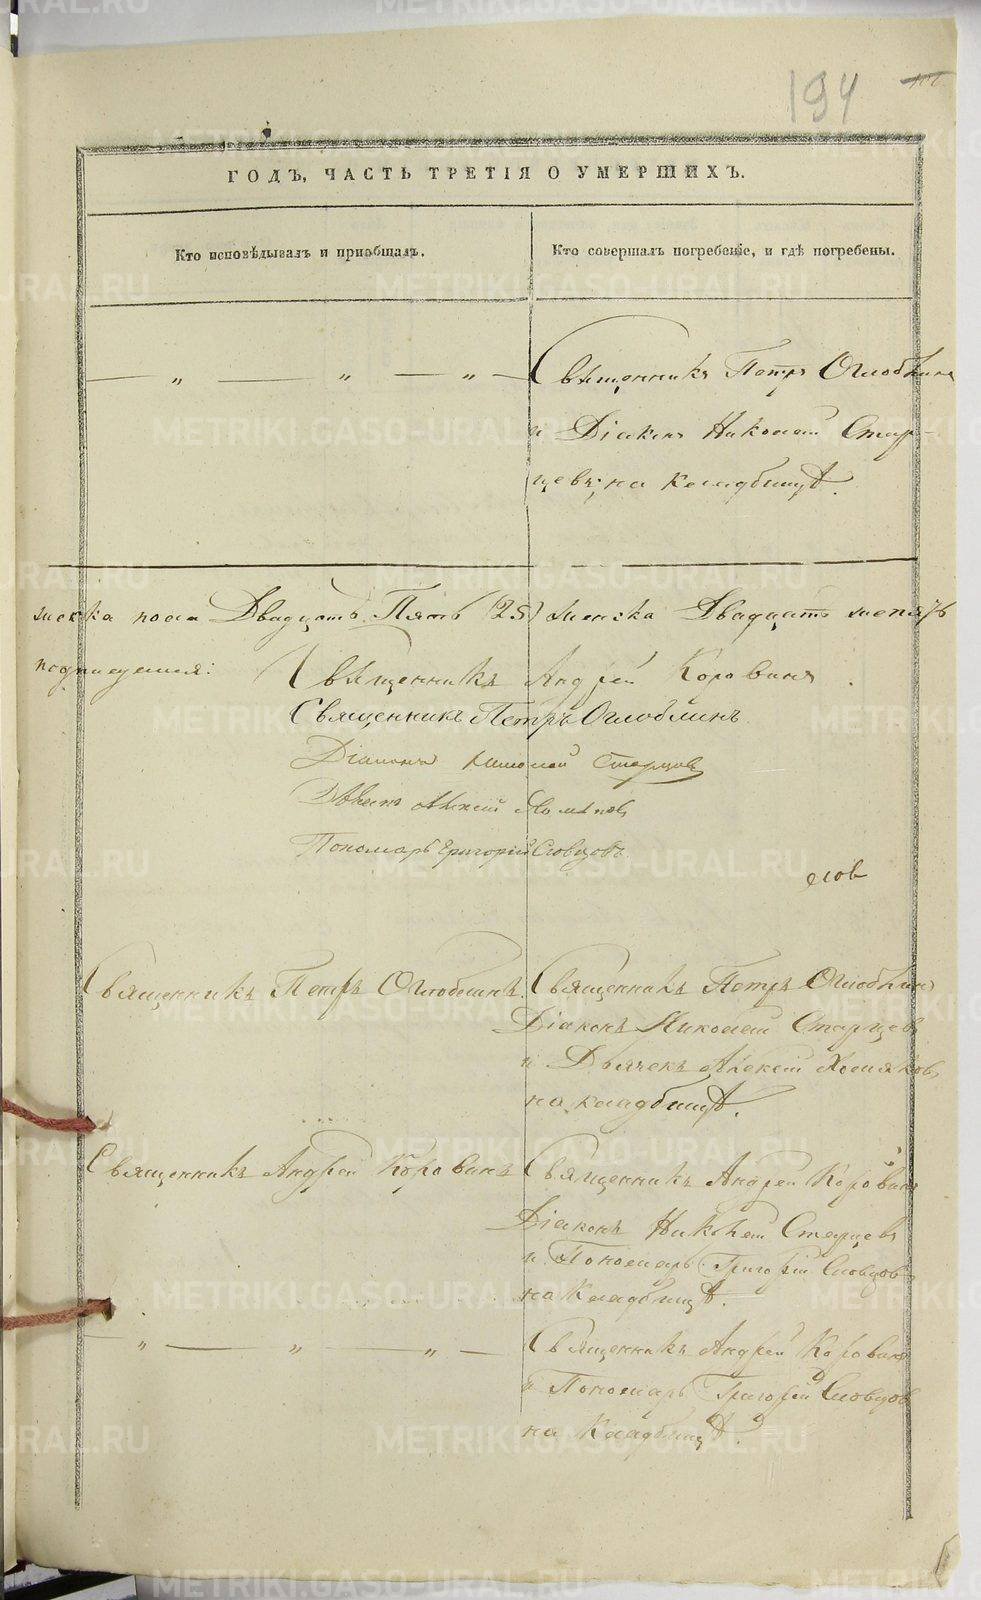 194
ГОДЪ, ЧАСТЬ ТРЕТІЯ О УМЕРШИХЪ.
Кто исповѣдывалъ и пріобщалъ.
Кто совершалъ погребеніе, и гдѣ погребены.
— „ — „ — „ —
Священникъ Петръ Оглоблинъ
и Діаконъ Николай Стар-
цевъ; на кладбищѣ.
Двадцать Пять (25) женска Двадцать
Священникъ Андрей Коровинъ
Священникъ Петръ Оглоблинъ
Діаконъ Николай Старцовъ
Алексей Хомяковъ
Пономарь Григорій Словцовъ
Священникъ Петръ Оглоблинъ.
Священникъ Петръ Оглоблинъ
Діаконъ Николай Старцевъ
и Дьячекъ Алексей Хомяковъ,
на кладбищѣ.
Священникъ Андрей Коровинъ
Священникъ Андрей Коровинъ
Діаконъ Николай Старцевъ
и Пономарь Григорій Словцовъ
на Кладбищѣ.
— „ — „ — „ —
Священникъ Андрей Коровинъ
и Пономарь Григорій Словцовъ
на Кладбищѣ.
METRIKI.GASO-URAL.RU